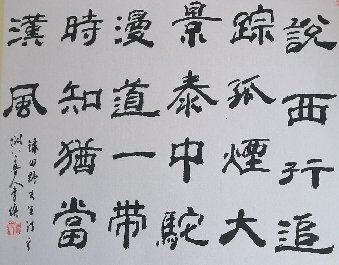 說西行追
踪孤煙大
景泰中駝
漫道一带
時知猶當
漢風